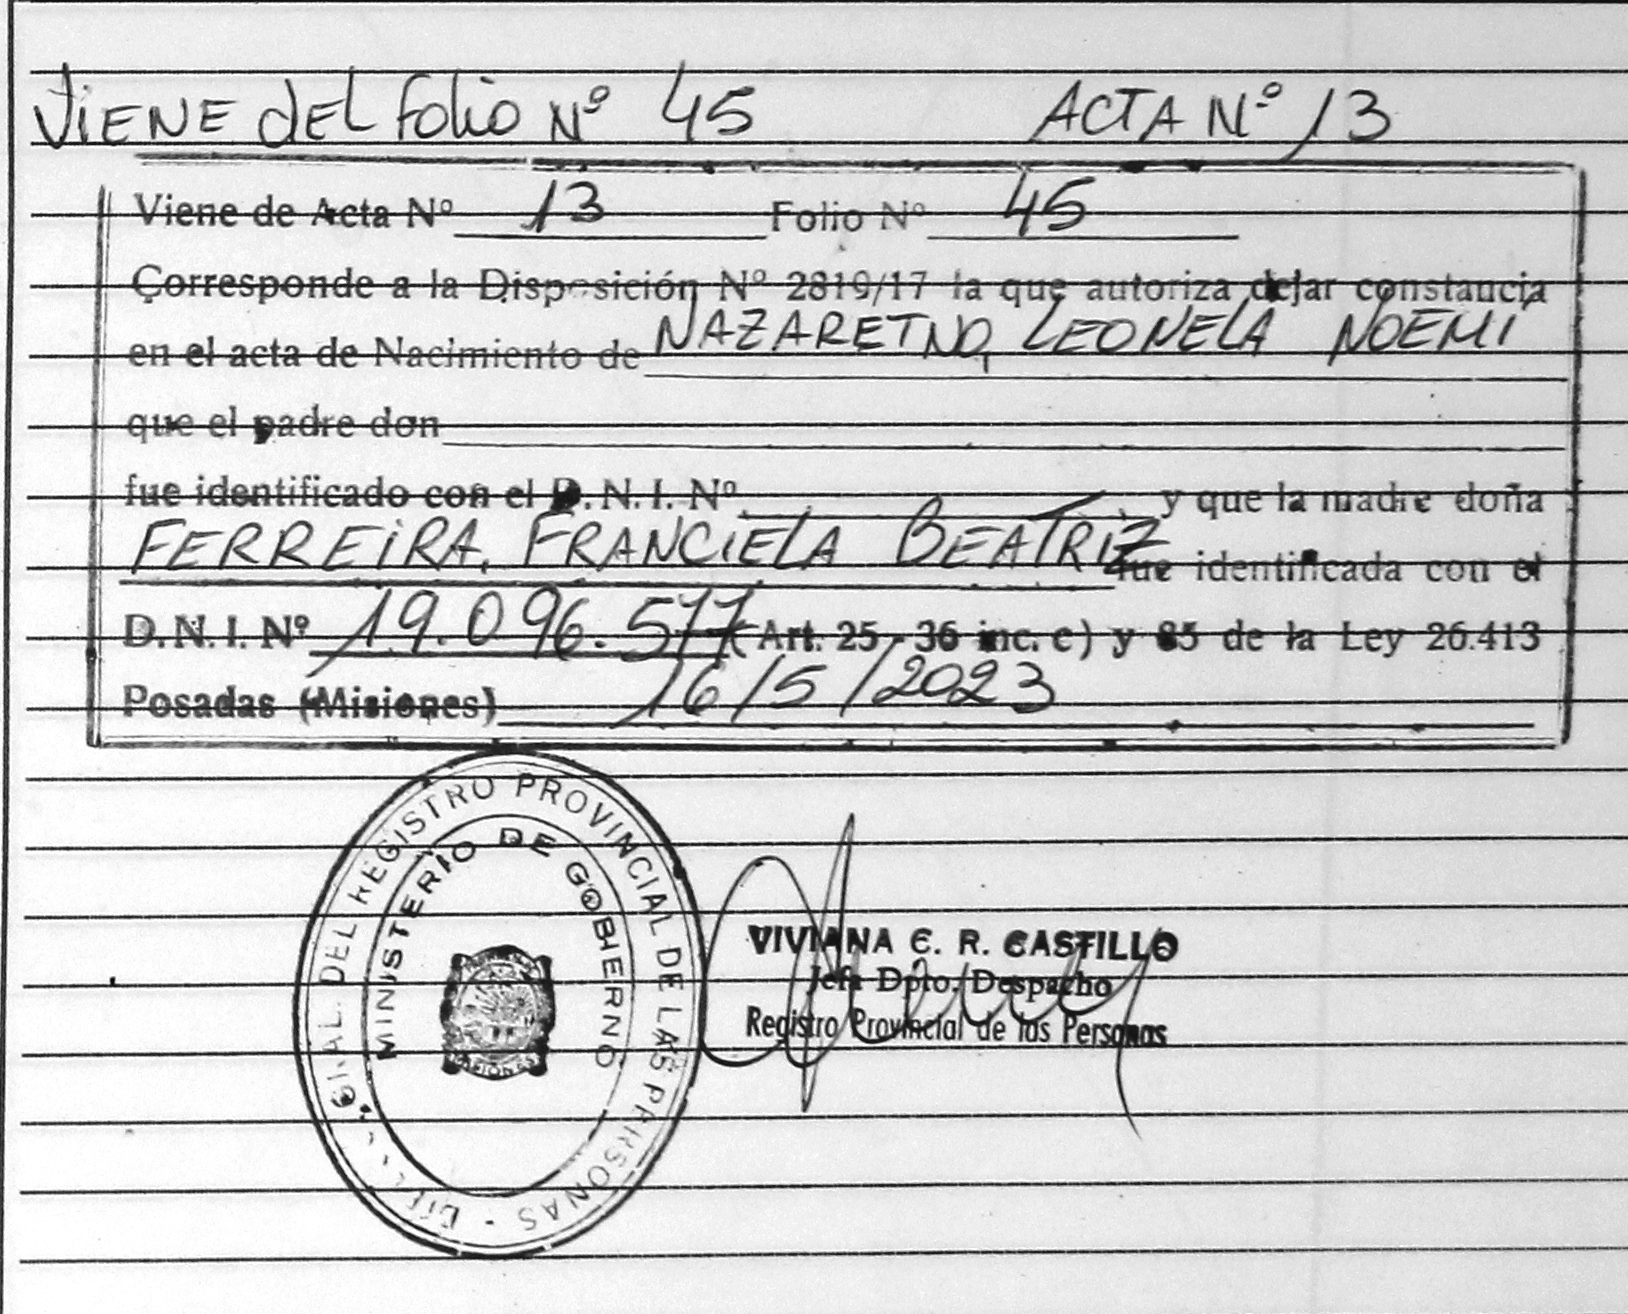 VIENE dEL Folio Nº 45 ACTA Nº 13
Viene de Acta Nº 13 Folio Nº 45
Corresponde a la Disposición Nº 2819/17 la que autoriza dejar constancia
en el acta de Nacimiento de NAZARETNO, LEONELA NOEMI
que el padre don
fue identificado con el D. N. I. Nº y que la madre doña
FERREIRA, FRANCIELA BEATRIZ fue identificada con el
D. N. I. Nº 19.096.577 (Art. 25 - 36 inc. c) y 85 de la Ley 26.413
Posadas (Misiones) 16/5/2023
GRAL. DEL REGISTRO PROVINCIAL DE LAS PERSONAS -
MINISTERIO DE GOBIERNO
VIVIANA C. R. CASTILLO
Jefa Dpto. Despacho
Registro Provincial de las Personas